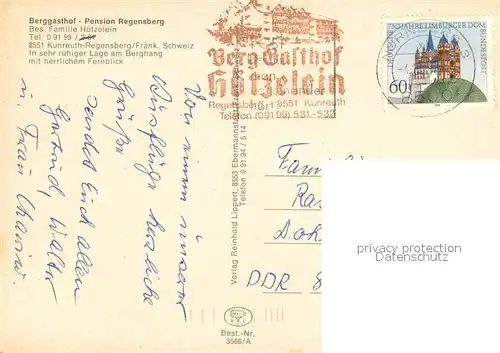 Berggasthof - Pension Regensberg
Bes. Familie Hötzelein
Tel. 0 91 99 /
8551 Kunreuth-Regensberg/Fränk. Schweiz
In sehr ruhiger Lage am Berghang
mit herrlichem Fernblick
Berg Gasthof
Hötzelein
Regensberg 8551 Kunreuth
Telefon (09199) 531-532
DEUTSCHE BUNDESPOST
750 JAHRE LIMBURGER DOM
60
Von einem unserer
Ausflüge herzliche
Grüße
sendet Euch allen
Gertrud, Walter
u. Frau
Verlag Reinhold Lippert, 8553 Ebermannstadt/Fränk. Schweiz
Telefon 0 91 94 / 5 14
Famil
Ra
Dok
DDR 8
privacy protection
Personendatenschutz
Best.-Nr.
3566/A